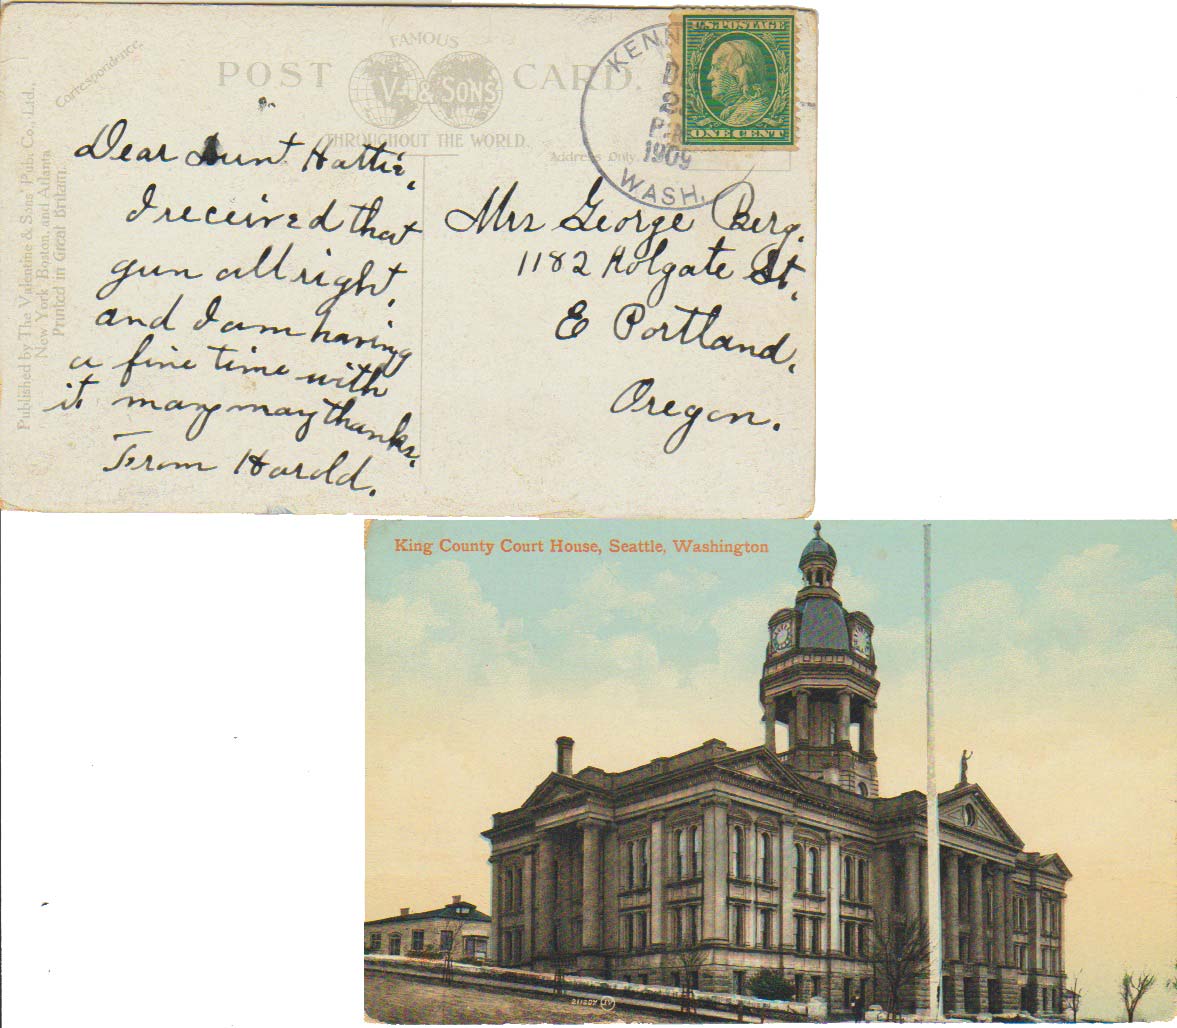 Correspondence.
FAMOUS
POST CARD.
V & SONS
THROUGHOUT THE WORLD.
Address Only.
Published by The Valentine & Sons' Pub. Co., Ltd.,
New York, Boston, and Atlanta
Printed in Great Britain.
KENN
D
2
P.M
1909
WASH.
U.S. POSTAGE
ONE CENT
Dear Aunt Hattie,
I received that
gun all right,
and I am having
a fine time with
it many many thanks.
From Harold.
Mrs George Berg.
1182 Holgate St,
E Portland,
Oregon.
King County Court House, Seattle, Washington
211207 (JV)